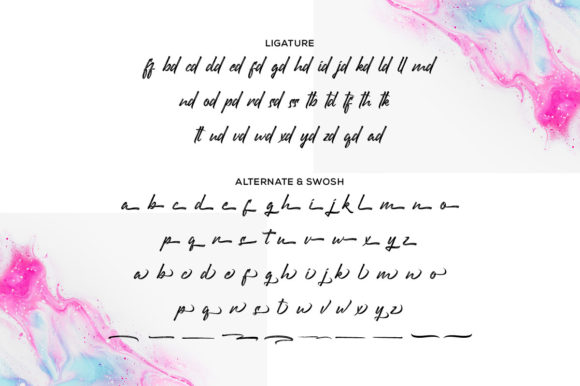 LIGATURE
ff bd cd dd ed fd gd hd id jd kd ld ll md
nd od pd rd sd ss tb td tf th tk
tl ud vd wd xd yd zd qd ad
ALTERNATE & SWOSH
a b c d e f g h i j k l m n o
p q r s t u v w x y z
a b c d e f g h i j k l m n o
p q r s t u v w x y z